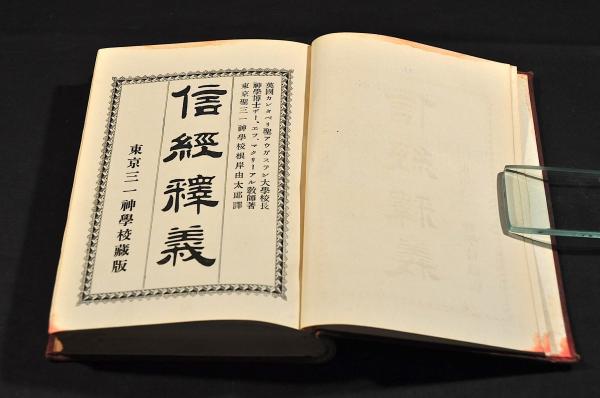 英國カンタベリ聖アウガスチン大學校長
神學博士ヂー、エフ、マクリーアル敎師著
東京聖三一神學校根岸由太郎譯
信經釋義
東京三一神學校藏版